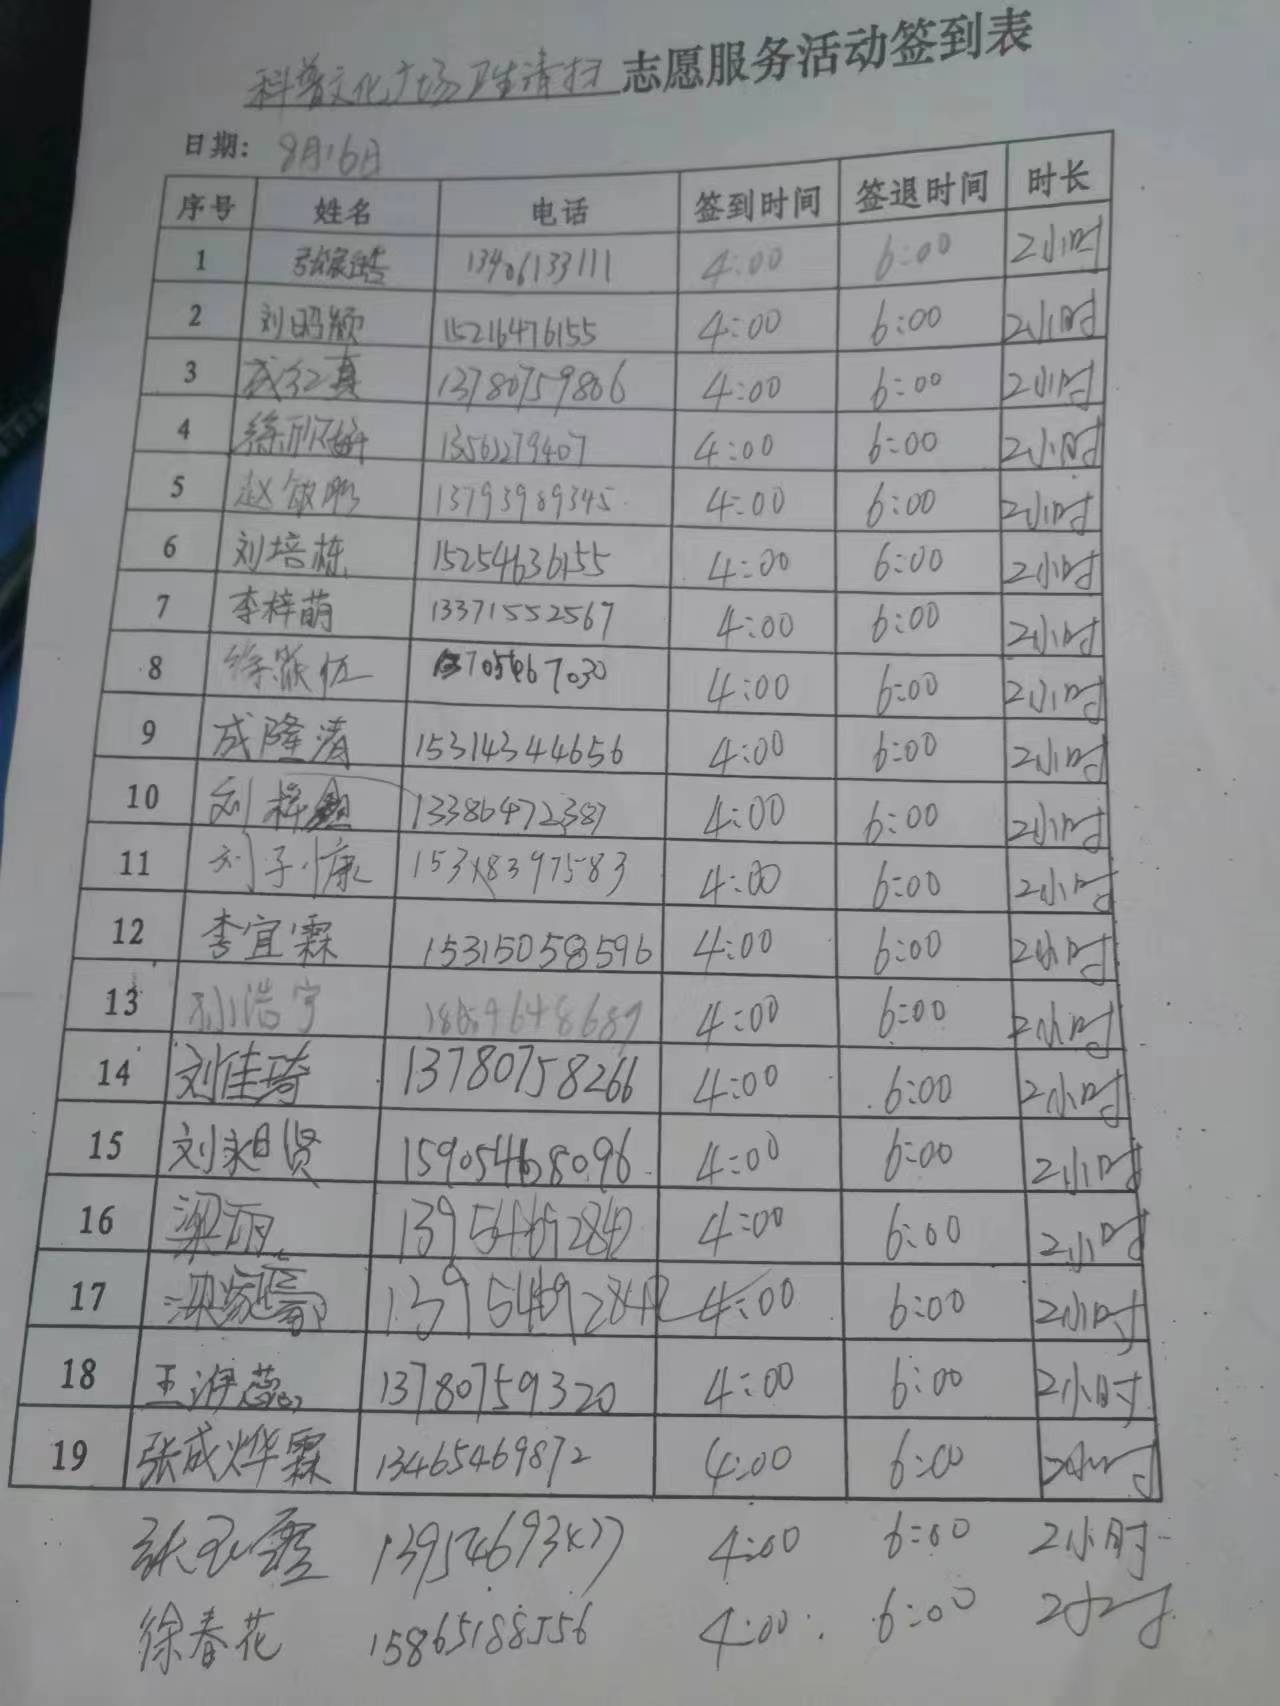 科普文化广场卫生清扫 志愿服务活动签到表
日期: 8月16日
序号 姓名 电话 签到时间 签退时间 时长
1 13406133111 4:00 6:00 2小时
2 刘昭颖 15216476155 4:00 6:00 2小时
3 成红真 13780759806 4:00 6:00 2小时
4 徐欣妍 13562279407 4:00 6:00 2小时
5 赵敏 13793989345 4:00 6:00 2小时
6 刘培栋 15254636155 4:00 6:00 2小时
7 李梓萌 13371552567 4:00 6:00 2小时
8 4:00 6:00 2小时
9 成隆清 15314344656 4:00 6:00 2小时
10 刘梓鑫 13386472387 4:00 6:00 2小时
11 刘子慷 15318397583 4:00 6:00 2小时
12 李宜霖 15315058596 4:00 6:00 2小时
13 孙浩宇 4:00 6:00 2小时
14 刘佳琦 13780758266 4:00 6:00 2小时
15 15905468096 4:00 6:00 2小时
16 梁丽 13954692842 4:00 6:00 2小时
17 13954692842 4:00 6:00 2小时
18 13780759320 4:00 6:00 2小时
19 张成烨霖 13465469872 4:00 6:00 2小时
13954693477 4:00 6:00 2小时
徐春花 15865188556 4:00 6:00 2小时